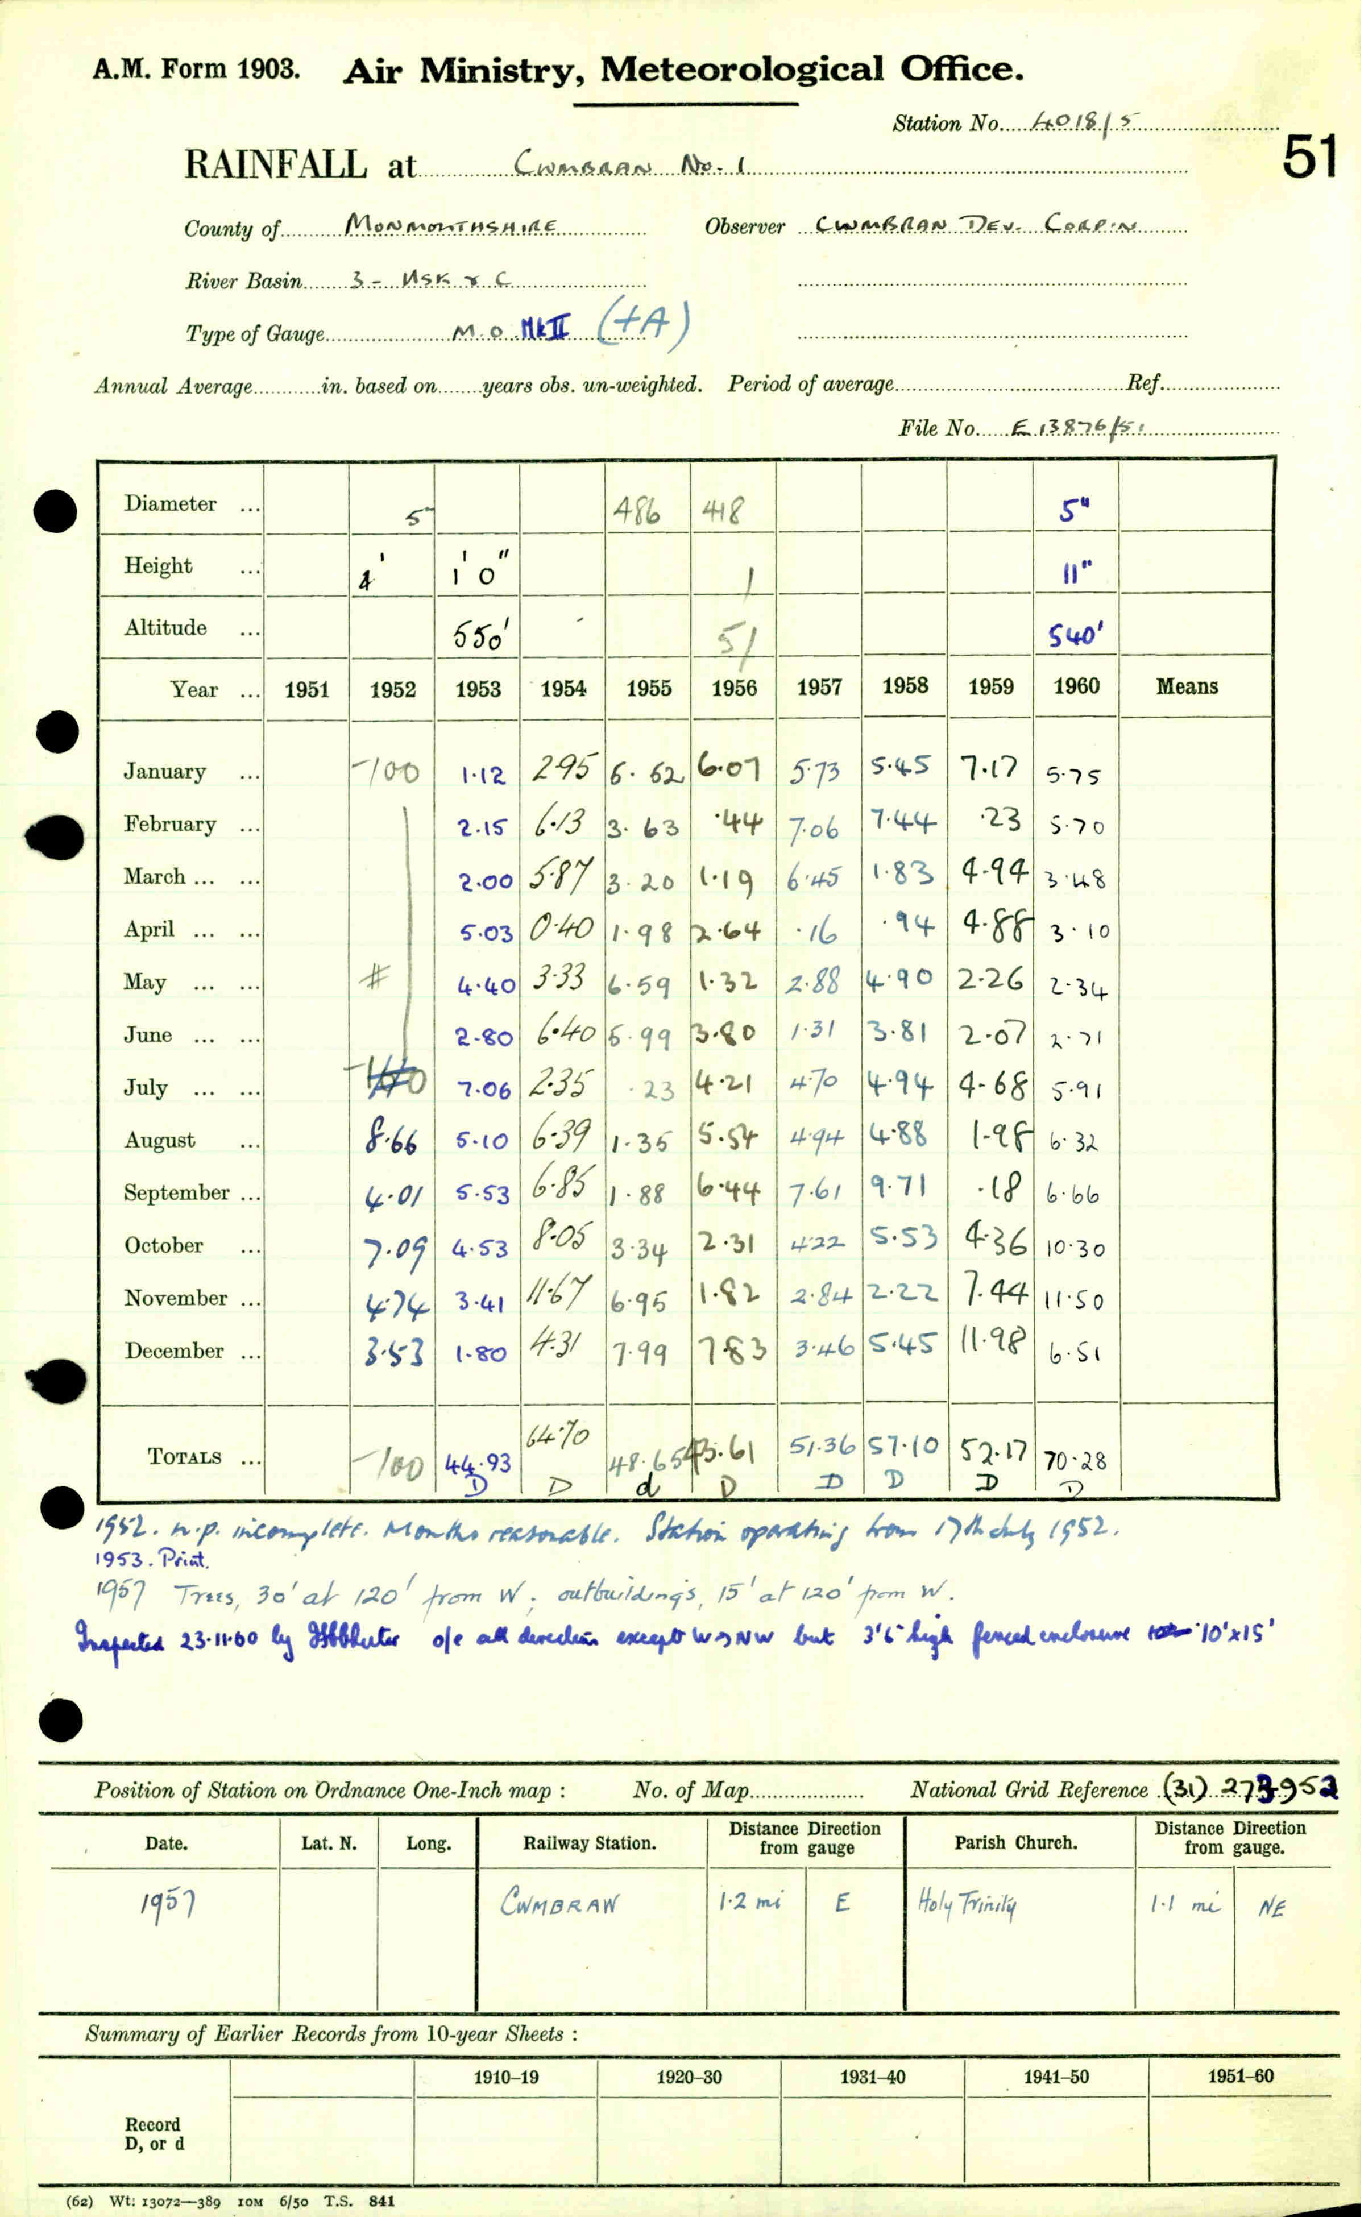 A.M. Form 1903. Air Ministry, Meteorological Office.
Station No. 4018/5
51
RAINFALL at CWMBRAN No. 1
County of MONMOUTHSHIRE Observer CWMBRAN DEV. CORP'N
River Basin 3 - USK & C
Type of Gauge M.O. Mk II (+A)
Annual Average in. based on years obs. un-weighted. Period of average Ref.
File No. E 13876/51
Diameter ... 5" 486 418 5"
Height ... 1' 1' 0" 1 11"
Altitude ... 550' 51 540'
Year ... 1951 1952 1953 1954 1955 1956 1957 1958 1959 1960 Means
January ... -100 1.12 2.95 5.52 6.07 5.73 5.45 7.17 5.75
February ... 2.15 6.13 3.63 .44 7.06 7.44 .23 5.70
March ... ... 2.00 5.87 3.20 1.19 6.45 1.83 4.94 3.48
April ... ... 5.03 0.40 1.98 2.64 .16 .94 4.88 3.10
May ... ... # 4.40 3.33 6.59 1.32 2.88 4.90 2.26 2.34
June ... ... 2.80 6.40 5.99 3.80 1.31 3.81 2.07 2.71
July ... ... -100 7.06 2.35 .23 4.21 4.70 4.94 4.68 5.91
August ... 8.66 5.10 6.39 1.35 5.54 4.94 4.88 1.98 6.32
September ... 4.01 5.53 6.85 1.88 6.44 7.61 9.71 .18 6.66
October ... 7.09 4.53 8.05 3.34 2.31 4.22 5.53 4.36 10.30
November ... 4.74 3.41 11.67 6.95 1.82 2.84 2.22 7.44 11.50
December ... 3.53 1.80 4.31 7.99 7.83 3.46 5.45 11.98 6.51
TOTALS ... -100 44.93 64.70 48.65 43.61 51.36 57.10 52.17 70.28
D D d D D D D D
1952. n.p. incomplete. Months reasonable. Station operating from 17th July 1952.
1953. Print.
1957 Trees, 30' at 120' from W; outbuildings, 15' at 120' from W.
Inspected 23.11.60 by o/e all directions except W → NW but 3'6" high fenced enclosure 10'x15'
Position of Station on Ordnance One-Inch map : No. of Map National Grid Reference (31) 273952
Date. Lat. N. Long. Railway Station. Distance Direction from gauge Parish Church. Distance Direction from gauge.
1957 CWMBRAN 1.2 mi E Holy Trinity 1.1 mi NE
Summary of Earlier Records from 10-year Sheets :
1910–19 1920–30 1931–40 1941–50 1951–60
Record
D, or d
(62) Wt: 13072—389 10M 6/50 T.S. 841